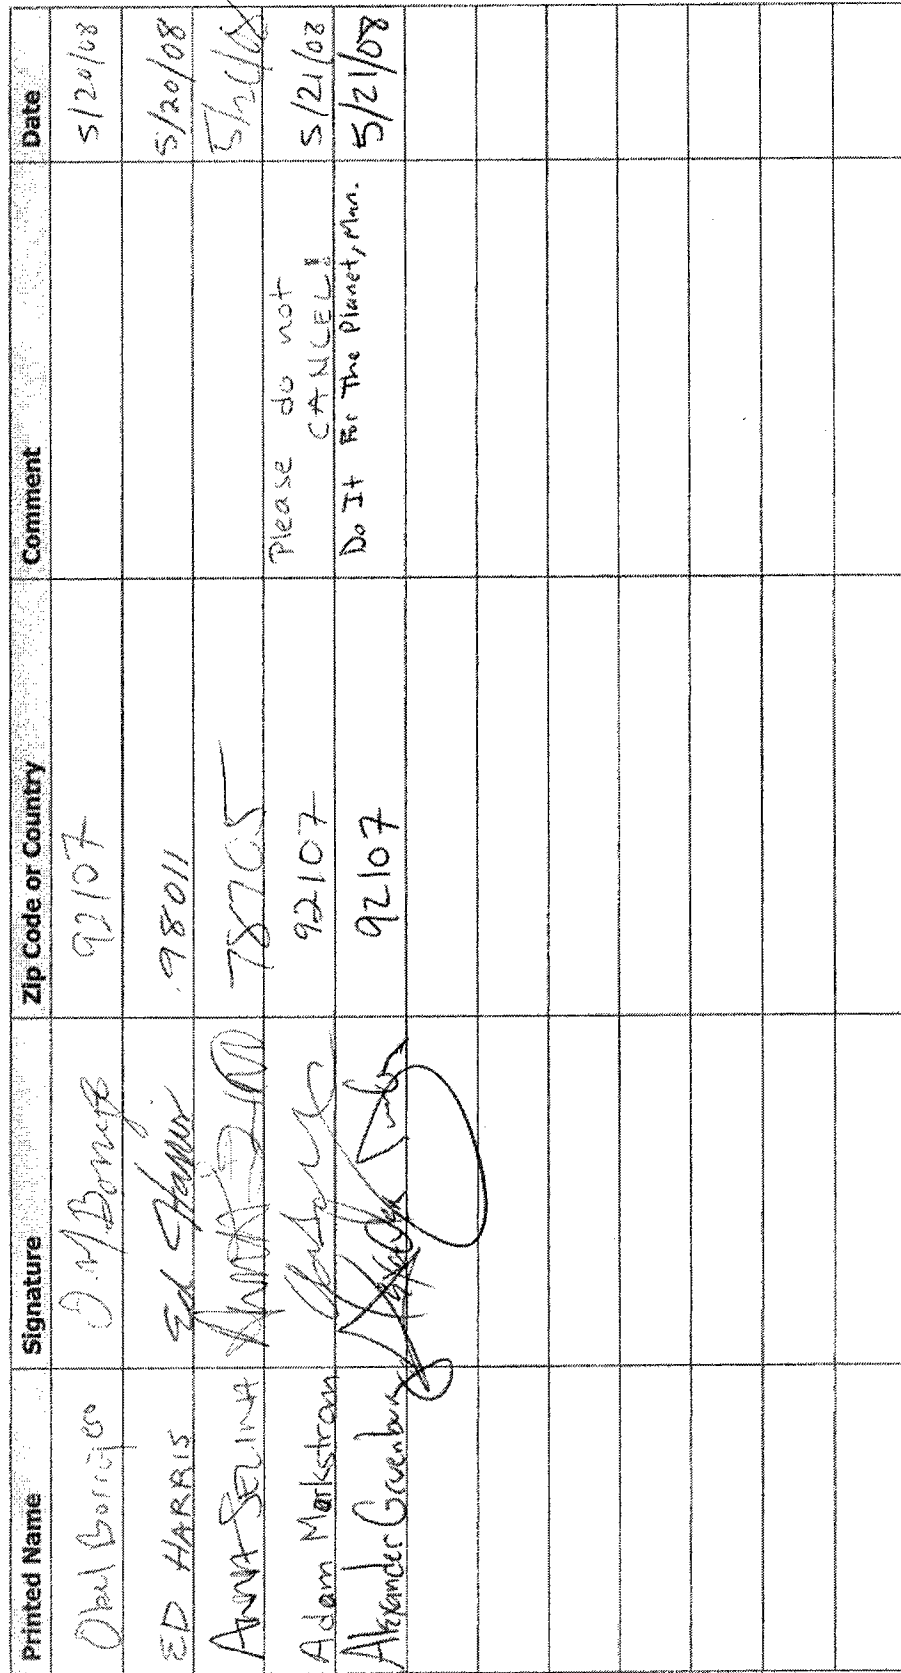 Printed Name Signature Zip Code or Country Comment Date
Obel Borrojero O. M. Borrojero 92107 5/20/08
ED HARRIS Ed Harris 98011 5/20/08
ANNA SELINA ANNA 78705 5/21/08
Adam Markstrom 92107 Please do not
CANCEL! 5/21/08
Alexander Gruenburg 92107 Do It For The Planet, Man. 5/21/08